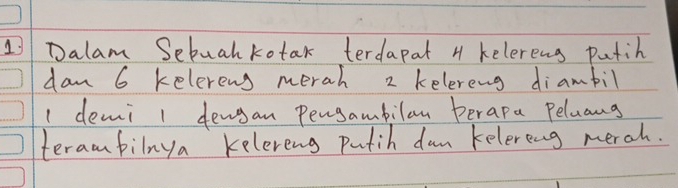 1. Dalam Sebuah kotak terdapat 4 kelereng putih
dan 6 kelereng merah 2 kelereng diambil
1 demi 1 dengan Pengambilan berapa Peluang
terambilnya kelereng Putih dan kelereng merah.